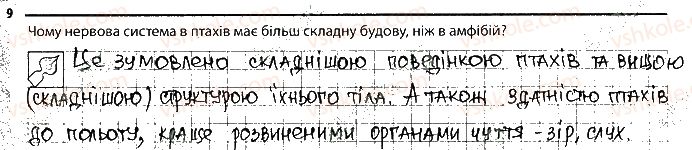 9
Чому нервова система в птахів має більш складну будову, ніж в амфібій?
Це зумовлено складнішою поведінкою птахів та вищою
(складнішою) структурою їхнього тіла. А також здатністю птахів
до польоту, краще розвиненими органами чуття - зір, слух.